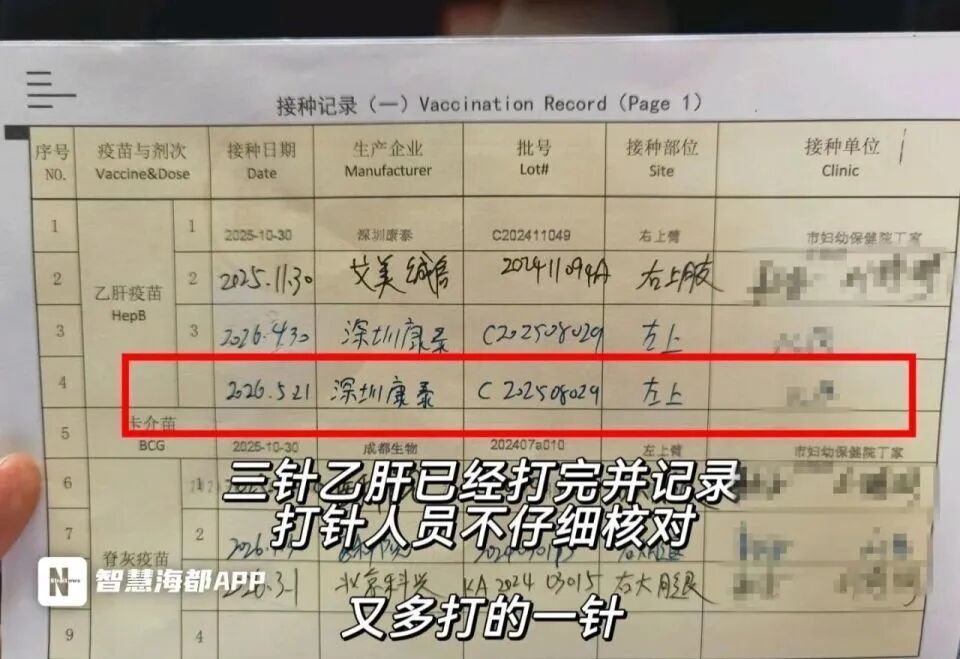 接种记录（一）Vaccination Record（Page 1）
序号 疫苗与剂次 接种日期 生产企业 批号 接种部位 接种单位
NO. Vaccine&Dose Date Manufacturer Lot# Site Clinic
1 1 2025-10-30 深圳康泰 C202411049 右上臂 市妇幼保健院丁家
2 2 2025.11.30 艾美 202411094A 右上肢
乙肝疫苗
HepB
3 3 2026.4.30 深圳康泰 C202508029 左上
4 2026.5.21 深圳康泰 C202508029 左上
5 卡介苗
BCG 2025-10-30 成都生物 202407a010 左上臂 市妇幼保健院丁家
三针乙肝已经打完并记录
6 1
打针人员不仔细核对
7 2
脊灰疫苗
N 智慧海都APP
北京科兴 KA 2024 03015 右大腿
又多打的一针
9 4